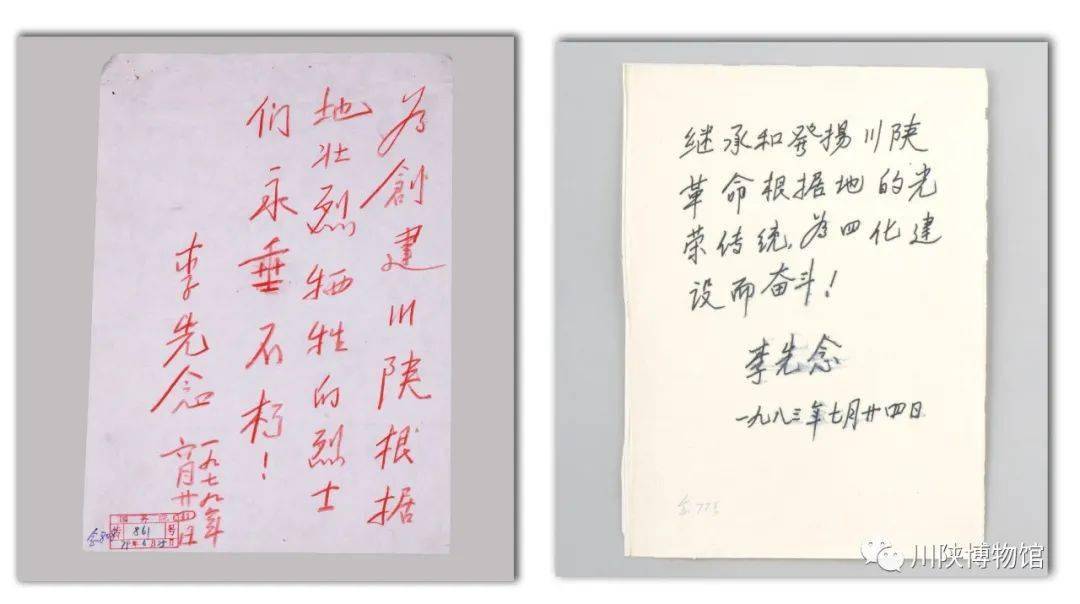 为創建川陕根据
地壮烈牺牲的烈士
们永垂不朽！
李先念
一九七九年
六月廿日
861 号
继承和發揚川陕
革命根据地的光
荣传统,为四化建
设而奋斗！
李先念
一九八三年七月廿四日
川陕博物馆